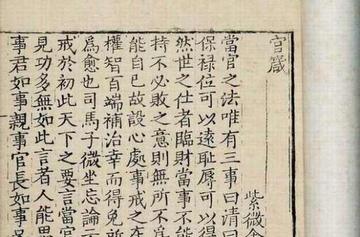 官箴
紫微
當官之法唯有三事曰清曰
保禄位可以遠恥辱可以得
然世之仕者臨財當事不能
持不必敗之意則無所不爲
能自已故設心處事戒之在
權智百端補治幸而得免所
爲愈也司馬子微坐忘論云
戒於初此天下之要言當官
見功多無如此言者人能思
事君如事親事官長如事